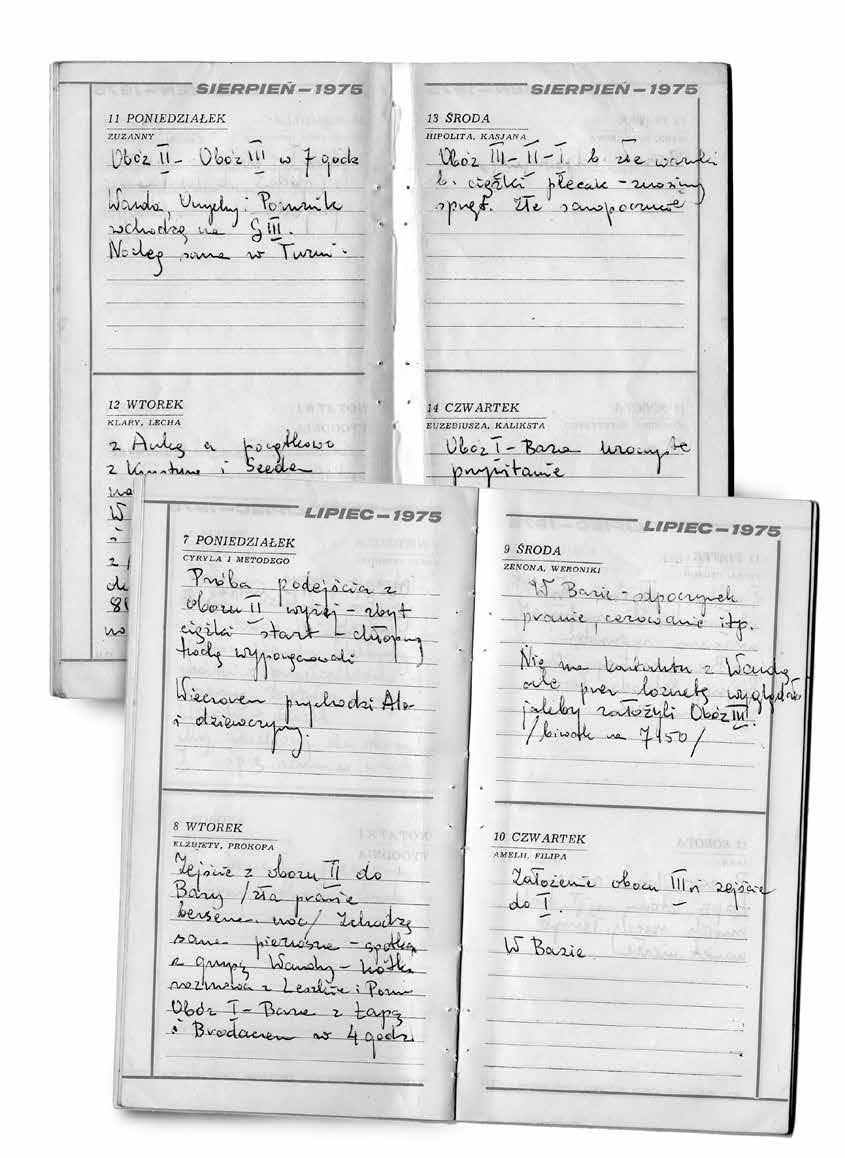 SIERPIEŃ—1975
11 PONIEDZIAŁEK
ZUZANNY
Obóz II – Obóz III w 7 godz
Wanda, Onyszk i Pomurnik
wchodzą na G III.
Nocleg sama w Turni.
12 WTOREK
KLARY, LECHA
z Anką a początkowo
z Krystyną i
W
i
SIERPIEŃ—1975
13 ŚRODA
HIPOLITA, KASJANA
Obóz III – II – I. b. złe warunki
b. ciężki plecak – znosimy
sprzęt. Złe samopoczucie
14 CZWARTEK
EUZEBIUSZA, KALIKSTA
Obóz I – Baza uroczyste
przywitanie
LIPIEC—1975
7 PONIEDZIAŁEK
CYRYLA I METODEGO
Próba podejścia z
obozu II wyżej – zbyt
ciężki start – chłopcy
trochę
Wieczorem przychodzi Ala
i dziewczyny.
8 WTOREK
ELŻBIETY, PROKOPA
Zejście z obozu II do
Bazy /zła prawie
bezsenna noc/ Schodzę
sama pierwsza – spotkan
z grupą Wandy – krótka
rozmowa z Leszkiem i Pomu
Obóz I – Baza z Łapą
i Brodaczem w 4 godz.
LIPIEC—1975
9 ŚRODA
ZENONA, WERONIKI
W Bazie – odpoczynek
pranie, cerowanie itp.
Nie ma kontaktu z Wandą
ale przez lornetę wygląda
jakby założyli Obóz III.
/biwak na 7150/
10 CZWARTEK
AMELII, FILIPA
Założenie obozu III i zejście
do I.
W Bazie